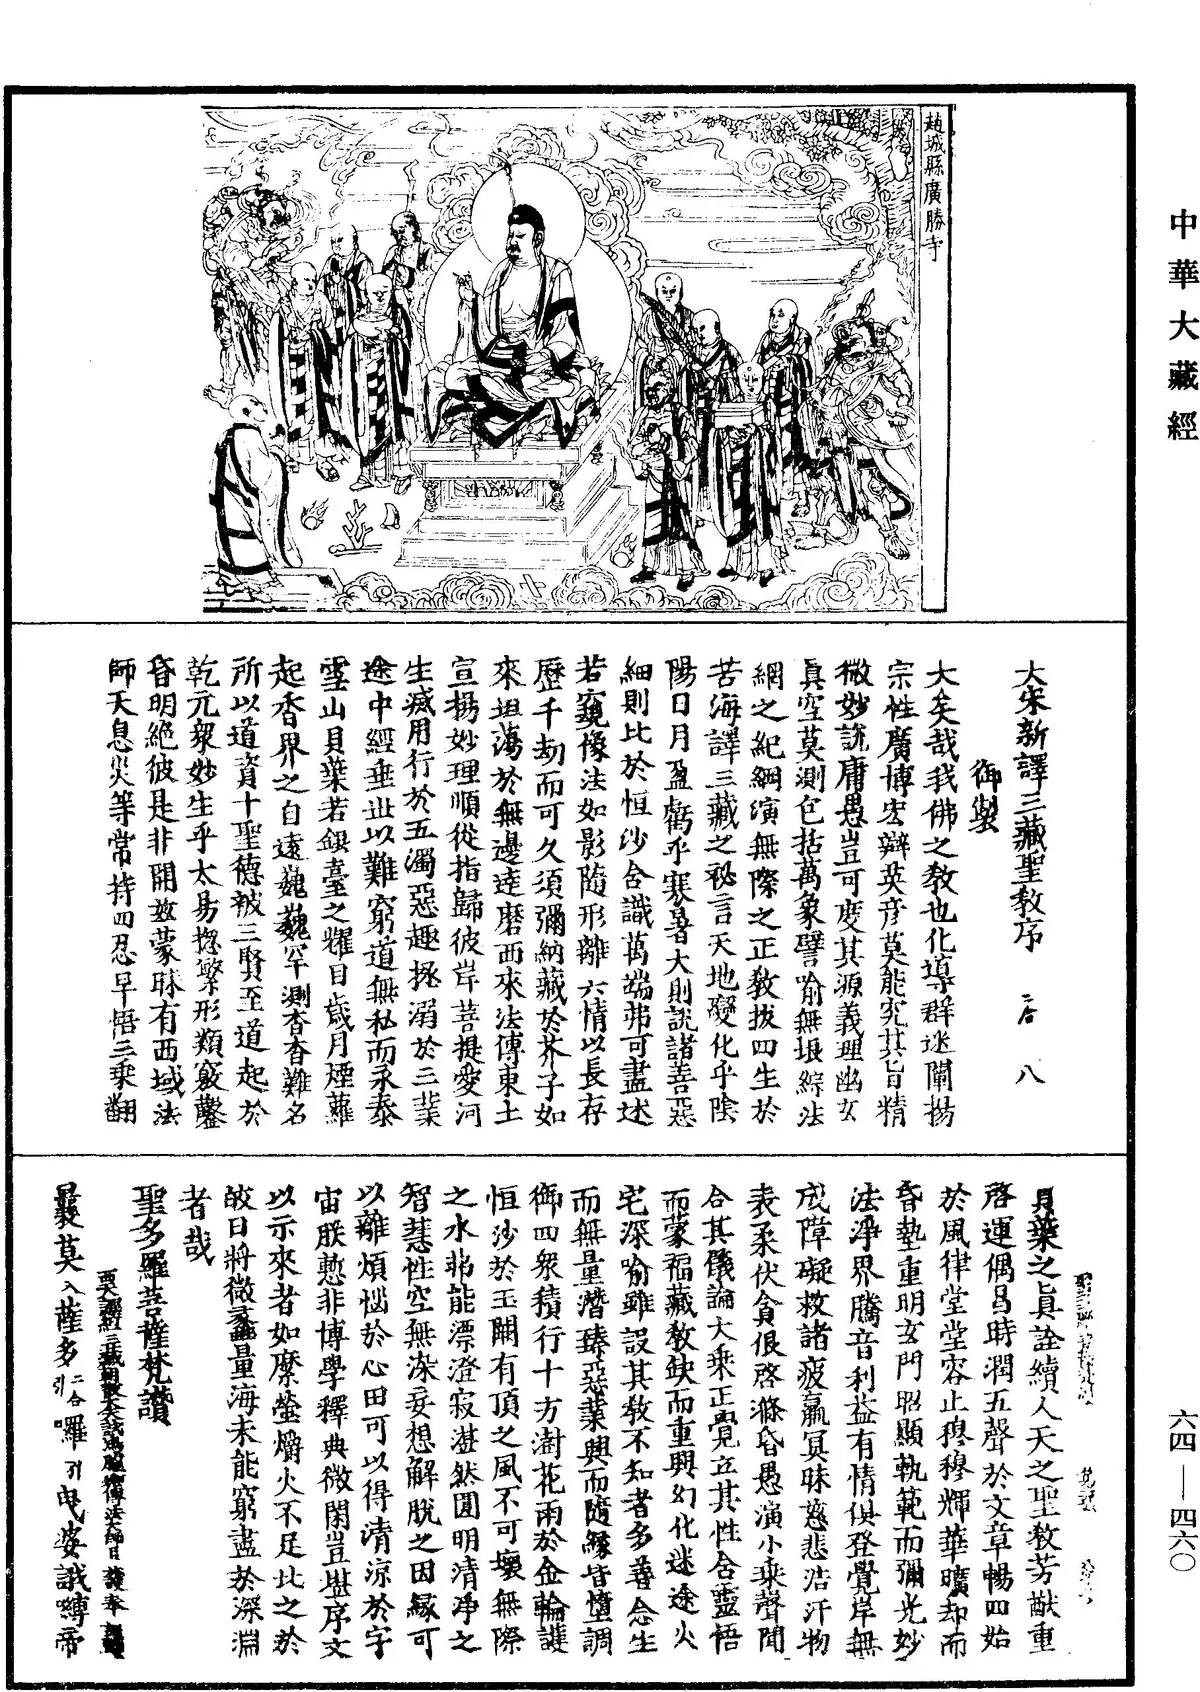 中華大藏經
趙城縣廣勝寺
大宋新譯三藏聖教序
御製
大矣哉我佛之教也化導群迷闡揚
宗性廣博宏辯英彥莫能究其旨精
微妙說庸愚豈可度其源義理幽玄
真空莫測包括萬象譬喻無垠綜法
網之紀綱演無際之正教拔四生於
苦海譯三藏之祕言天地變化乎陰
陽日月盈虧乎寒暑大則說諸善惡
細則比於恒沙含識萬端弗可盡述
若窺像法如影隨形離六情以長存
歷千劫而可久須彌納藏於芥子如
來坦蕩於無邊達磨西來法傳東土
宣揚妙理順從指歸彼岸菩提愛河
生滅用行於五濁惡趣拯溺於三業
途中經垂世以難窮道無私而永泰
雪山貝葉若銀臺之耀目歲月煙蘿
起香界之自遠巍巍罕測杳杳難名
所以道資十聖德被三賢至道起於
乾元衆妙生乎太易揔繁形類竅鑿
昏明絕彼是非開茲蒙昧有西域法
師天息災等常持四忍早悟三乘翻
貝葉之真詮續人天之聖教芳猷重
啓運偶昌時潤五聲於文章暢四始
於風律堂堂容止穆穆輝華曠却而
昏墊重明玄門昭顯軌範而彌光妙
法淨界騰音利益有情俱登覺岸無
成障礙救諸疲羸冥昧慈悲浩汗物
表柔伏貪很啓滌昏愚演小乘聲聞
合其儀論大乘正覺立其性含靈悟
而蒙福藏教缺而重興幻化迷途火
宅深喻雖設其教不知者多善念生
而無量潛臻惡業興而隨緣皆墮調
御四衆積行十方澍花雨於金輪護
恒沙於玉關有頂之風不可壞無際
之水非能漂澄寂湛然圓明清淨之
智慧性空無染妄想解脫之因緣可
以離煩惱於心田可以得清涼於宇
宙朕慙非博學釋典微閑豈堪序文
以示來者如縻螢爝火不足比之於
皎日將微蠡量海未能窮盡於深淵
者哉
聖多羅菩薩梵讚
曩莫入薩多二合引囉引曳婆誐嚩帝
六四—四六〇